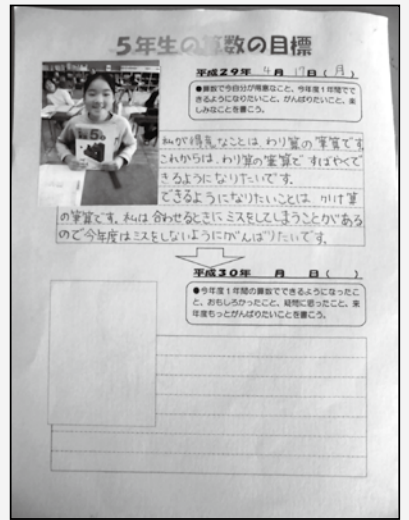 5年生の算数の目標
平成29年 4月 17日(月)
●算数で今自分が得意なこと、今年度1年間でで
きるようになりたいこと、がんばりたいこと、楽
しみなことを書こう。
私が得意なことは、わり算の筆算です。
これからは、わり算の筆算で すばやくで
きるようになりたいです。
できるようになりたいことは、かけ算
の筆算です。私は合わせるときにミスをしてしまうことがある
ので今年度はミスをしないようにがんばりたいです。
平成30年 月 日( )
●今年度1年間の算数でできるようになったこ
と、おもしろかったこと、疑問に思ったこと、来
年度もっとがんばりたいことを書こう。